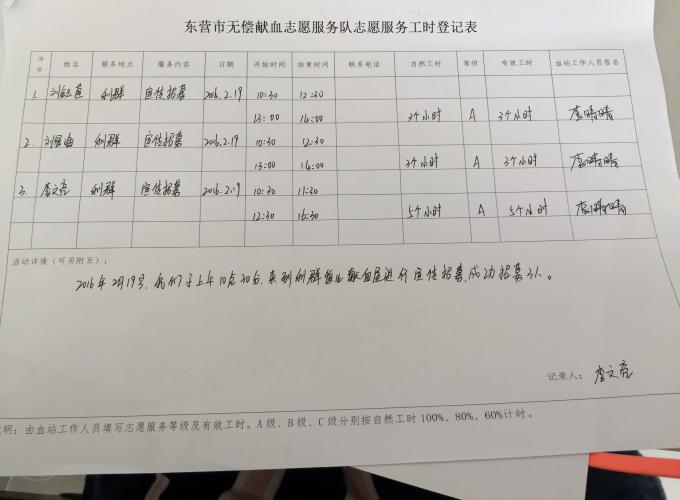 东营市无偿献血志愿服务队志愿服务工时登记表
序号 姓名 服务地点 服务内容 日期 开始时间 结束时间 联系电话 自然工时 等级 有效工时 血站工作人员签名
1. 利群 宣传招募 2016.2.19 10:30 12:30
13:00 14:00 3个小时 A 3个小时 李晴晴
2. 利群 宣传招募 2016.2.19 10:30 12:30
13:00 14:00 3个小时 A 3个小时 李晴晴
3. 李文亮 利群 宣传招募 2016.2.19 10:30 11:30
12:30 16:30 5个小时 A 5个小时 李晴晴
活动详情（可另附页）：
2016年2月19号，我们于上午10点30分，来到利群献血屋进行宣传招募，成功招募3人。
记录人：李文亮
明：由血站工作人员填写志愿服务等级及有效工时。A级、B级、C级分别按自然工时100%、80%、60%计时。